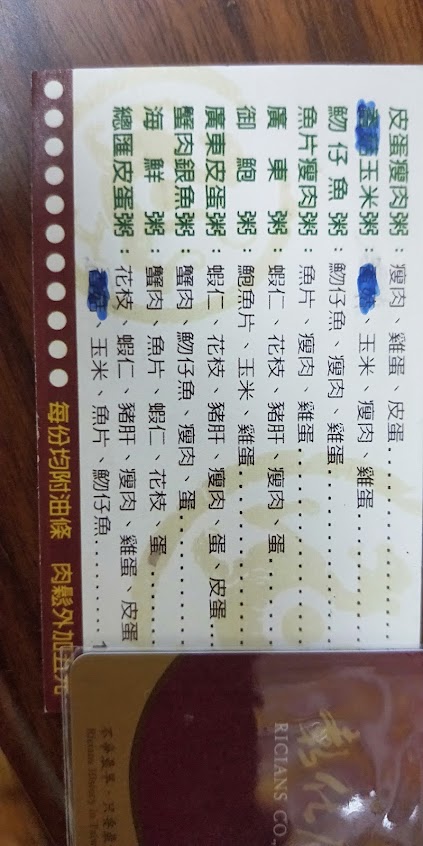 皮蛋瘦肉粥：瘦肉、雞蛋、皮蛋
玉米粥：、玉米、瘦肉、雞蛋
吻仔魚粥：吻仔魚、瘦肉、雞蛋
魚片瘦肉粥：魚片、瘦肉、雞蛋
廣東粥：蝦仁、花枝、豬肝、瘦肉、蛋
御鮑粥：鮑魚片、玉米、雞蛋
廣東皮蛋粥：蝦仁、花枝、豬肝、瘦肉、蛋、皮蛋
蟹肉銀魚粥：蟹肉、吻仔魚、瘦肉、蛋
海鮮粥：蟹肉、魚片、蝦仁、花枝、蛋
總匯皮蛋粥：花枝、蝦仁、豬肝、瘦肉、雞蛋、皮蛋
、玉米、魚片、吻仔魚
每份均附油條 肉鬆外加五元
RICIANS CO.,